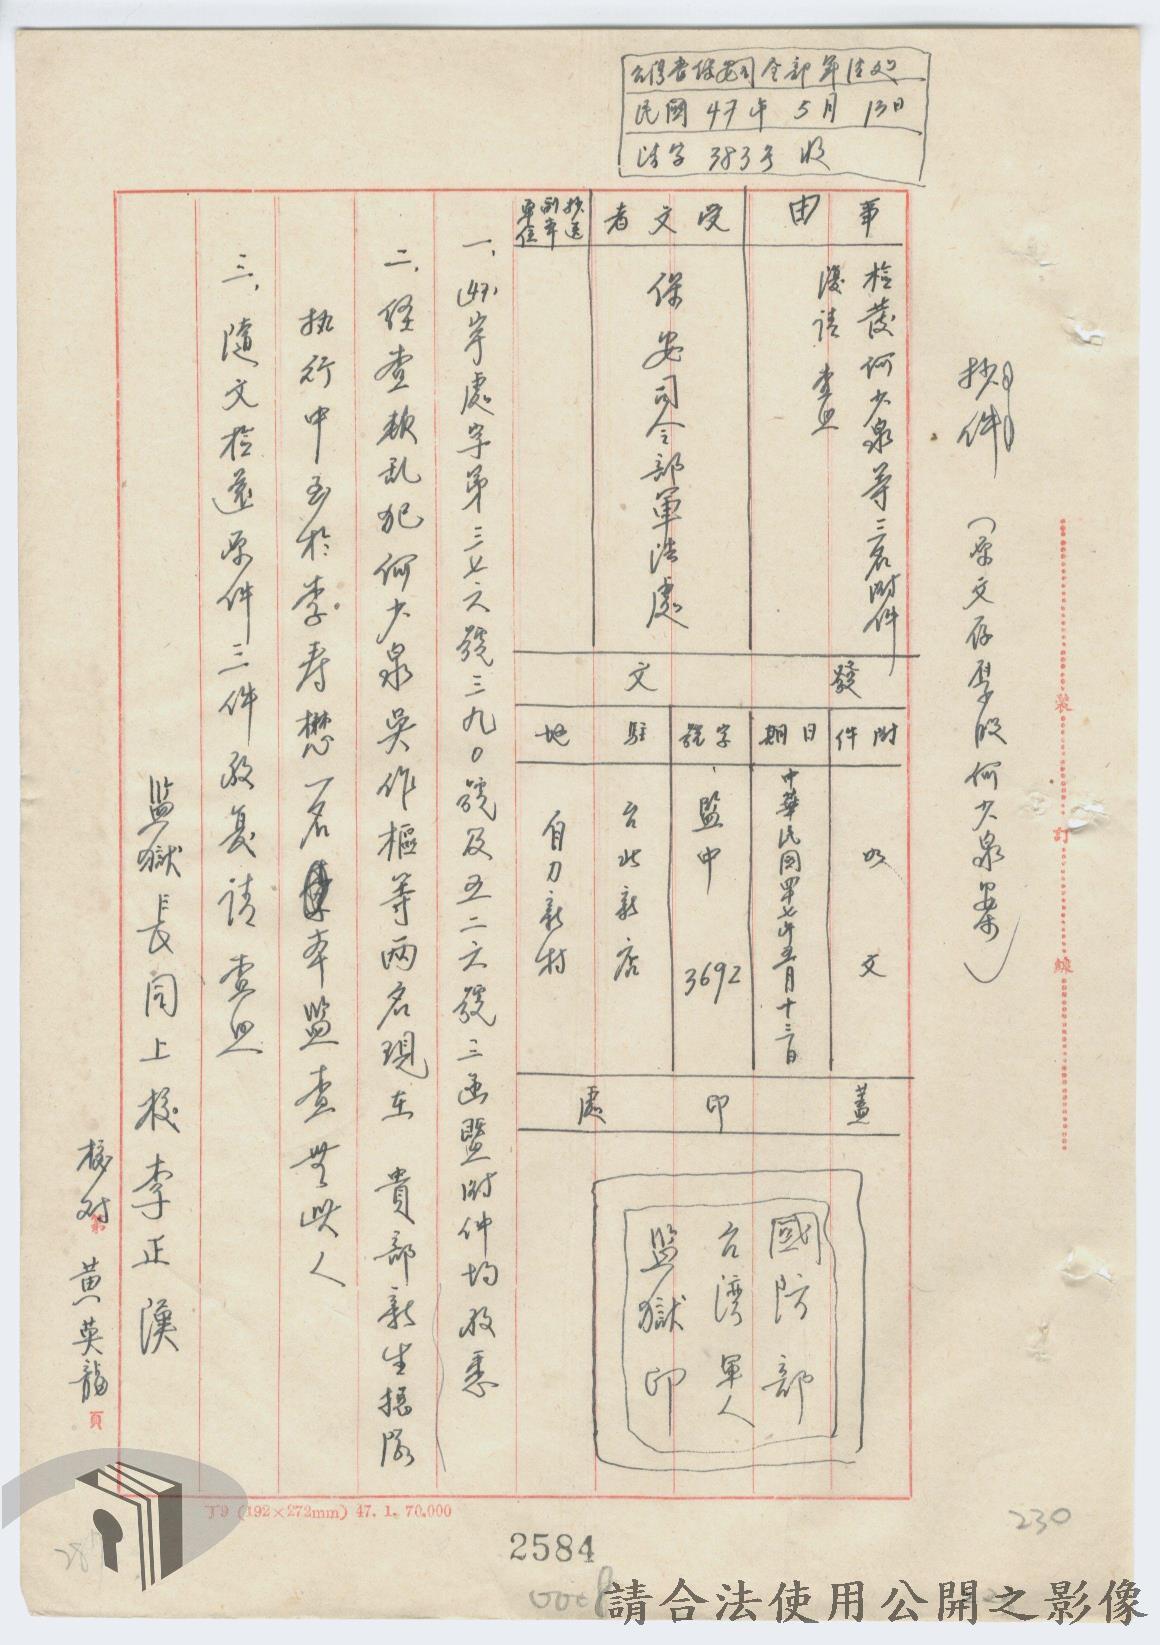 台灣省保安司令部軍法處
民國47年5月13日
法字383号收
抄件(原文存厚股何少泉案)
事由
檢發何少泉等三名附件
復請查照
受文者
保安司令部軍法處
抄送副本單位
發文
附件
如文
日期
中華民國四七年五月十三日
字號
監中 3692
駐地
台北新店
自力新村
蓋印處
國防部
台湾軍人
監獄印
一、字處字第三七六號三九0號及五二六號三函暨附件均收悉
二、經查叛乱犯何少泉吳作樞等兩名現在 貴部新生總隊
執行中至於李寿懋一名本監查無此人
三、隨文檢還原件三件敬复請查照
監獄長同上校李正漢
校对 黃英龍
裝
訂
線
第
頁
丁9 (192×272mm) 47. 1. 70.000
2584
230
請合法使用公開之影像